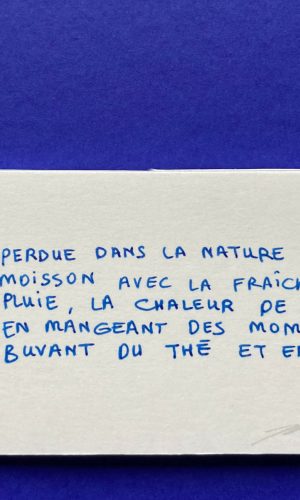 PERDUE DANS LA NATURE
MOISSON AVEC LA FRAÎCH
PLUIE, LA CHALEUR DE
EN MANGEANT DES MOM
BUVANT DU THÉ ET E